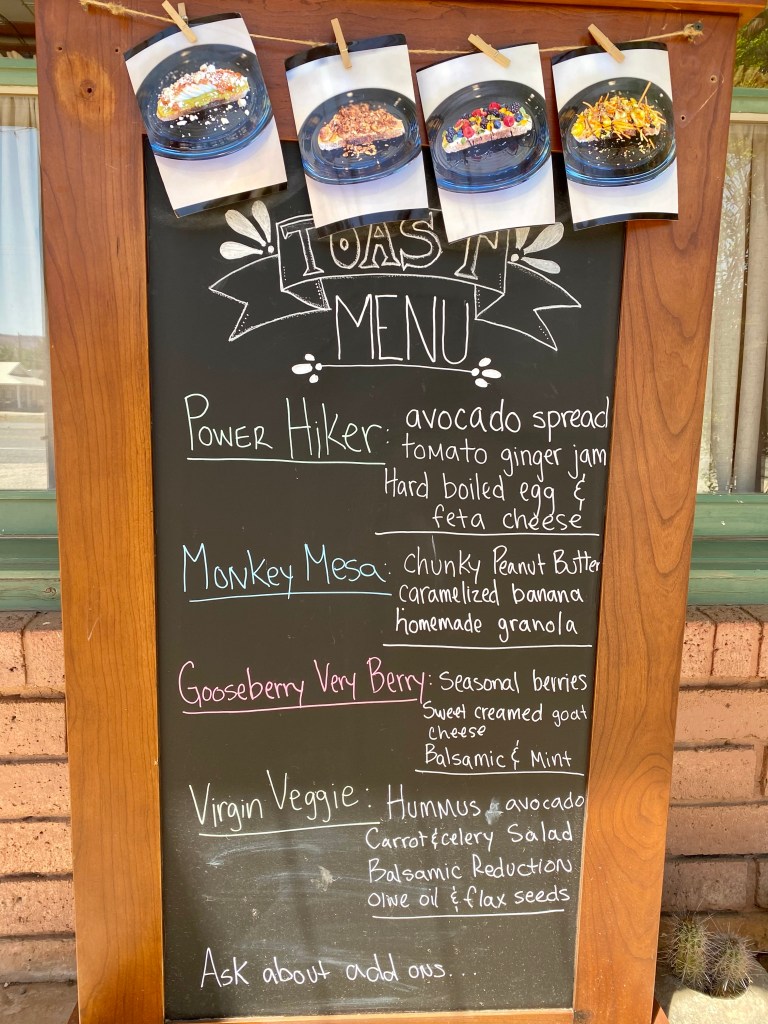 TOAST
MENU
Power Hiker: avocado spread
tomato ginger jam
Hard boiled egg &
feta cheese
Monkey Mesa: chunky Peanut Butter
caramelized banana
homemade granola
Gooseberry Very Berry: Seasonal berries
Sweet creamed goat
cheese
Balsamic & Mint
Virgin Veggie: Hummus & avocado
Carrot & celery Salad
Balsamic Reduction
Olive oil & flax seeds
Ask about add ons...